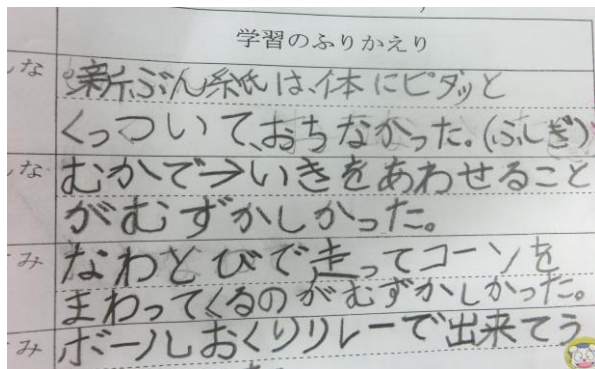 学習のふりかえり
しな
新ぶん紙は、体にピタッと
くっついて、おちなかった。(ふしぎ)
しな
むかで→いきをあわせること
がむずかしかった。
み
なわとびで走ってコーンを
まわってくるのがむずかしかった。
み
ボールおくりリレーで出来てう